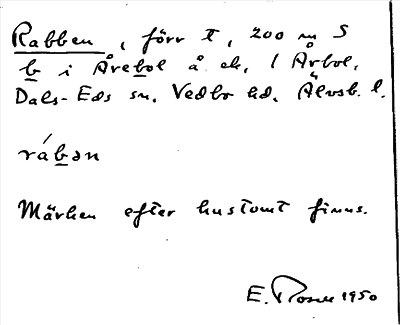 Rabben, förr t, 200 m S
b i Årebol å ek. 1 Årbol,
Dals-Eds sn. Vedbo hd. Älvsb. l.
rábən
Märken efter hustomt finns.
E. Rosen 1950